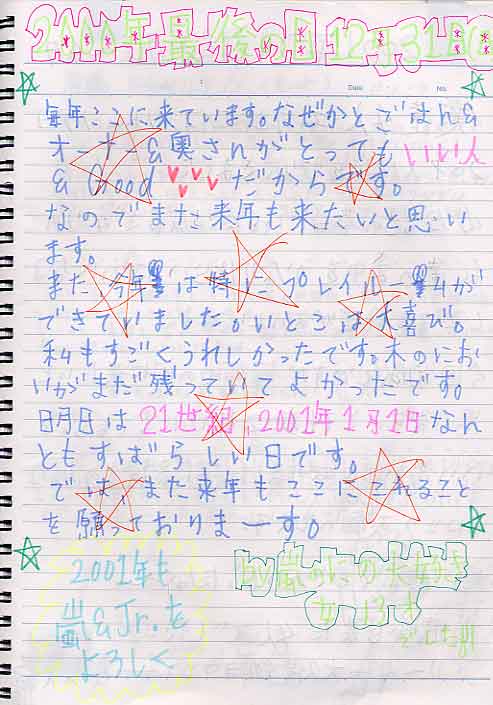 2000年最後の日12月31日
Date
No.
毎年ここに来ています。なぜかとごはん&
オーナー&奥さんがとってもいい人
& Good だからです。
なのでまた来年も来たいと思い
ます。
また今年は特にプレイルームが
できていました。いとこは大喜び。
私もすごくうれしかったです。木のにお
いがまだ残っていてよかったです。
明日は21世紀、2001年1月1日なん
ともすばらしい日です。
では、また来年もここにこれること
を願っておりまーす。
2001年も
嵐&Jr.を
よろしく
by嵐のにの大好き
女13才
でした!!